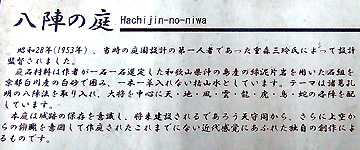 八陣の庭 Hachijin-no-niwa
昭和28年(1953年)、当時の庭園設計の第一人者であった重森三玲氏によって設計
監督されました。
庭石材料は作者が一石一石選定した和歌山県沖の島産の緑泥片岩を用いた石組を
京都白川産の白砂で囲み、一木一草入れない枯山水としています。テーマは諸葛孔
明の八陣法を取り入れ、大将を中心に天・地・風・雲・龍・虎・鳥・蛇の各陣を配
しています。
本庭は城跡の保存を意識し、将来建設されるであろう天守閣から、さらに上空か
らの俯瞰を意図して作庭されたこれまでにない近代感覚にあふれた独自の創作によ
るものです。